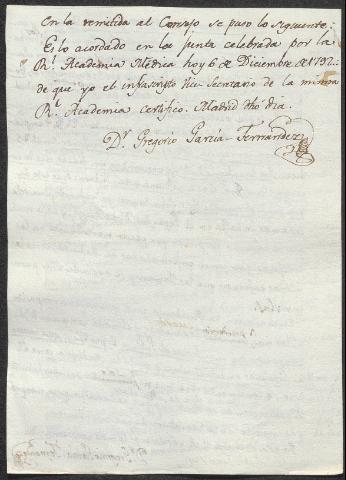 En la remitida al Consejo se puso lo siguiente:
Es lo acordado en la junta celebrada por la
Rl. Academia Médica hoy 6 de Diciembre de 1792:
de que yo el infrascripto Vice Secretario de la misma
Rl. Academia certifico. Madrid dho dia.
Dr. Gregorio Garcia-Fernandez